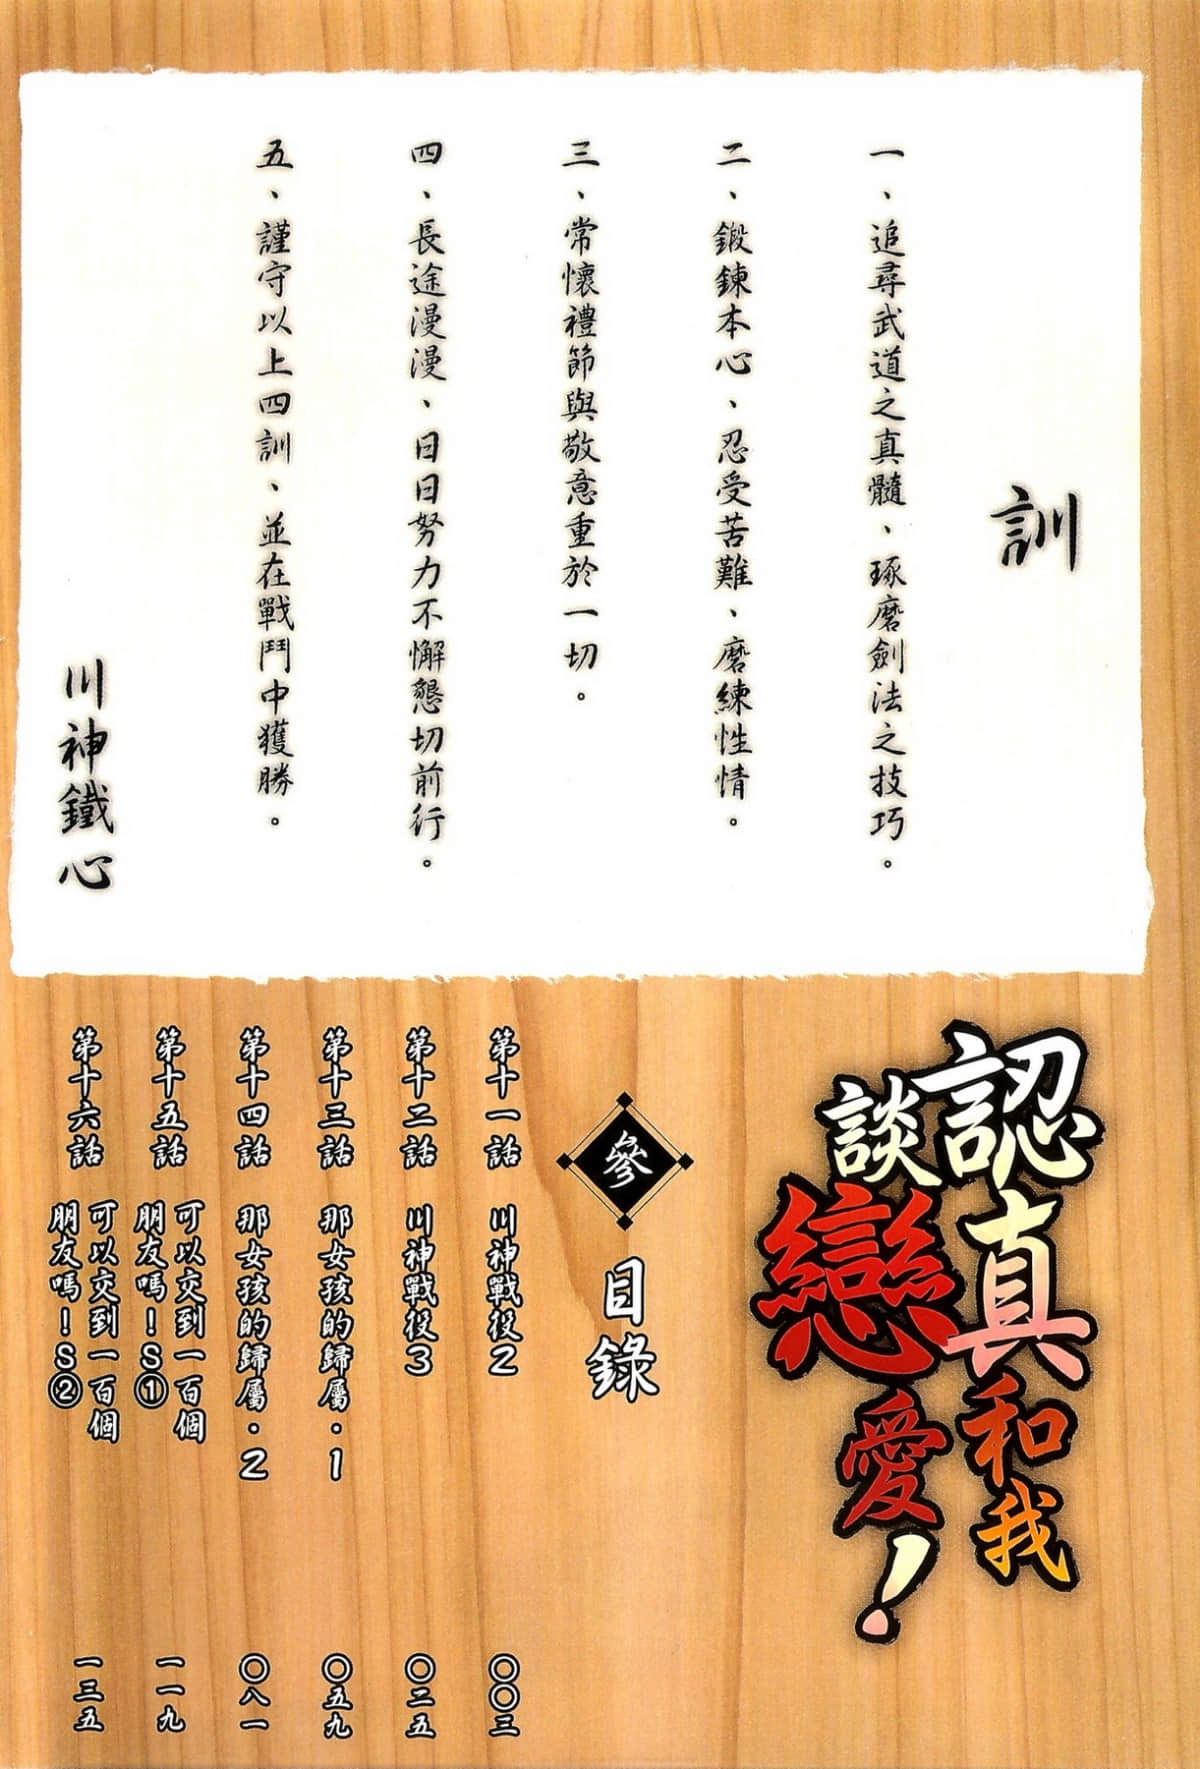 訓
一、追尋武道之真髓、琢磨劍法之技巧。
二、鍛鍊本心、忍受苦難、磨練性情。
三、常懷禮節與敬意重於一切。
四、長途漫漫、日日努力不懈懇切前行。
五、謹守以上四訓、並在戰鬥中獲勝。
川神鐵心
認真和我
談戀愛!
參
目錄
第十一話 川神戰役2 〇〇三
第十二話 川神戰役3 〇二五
第十三話 那女孩的歸屬・1 〇五九
第十四話 那女孩的歸屬・2 〇八一
第十五話 可以交到一百個
朋友嗎!S① 一一九
第十六話 可以交到一百個
朋友嗎!S② 一三五